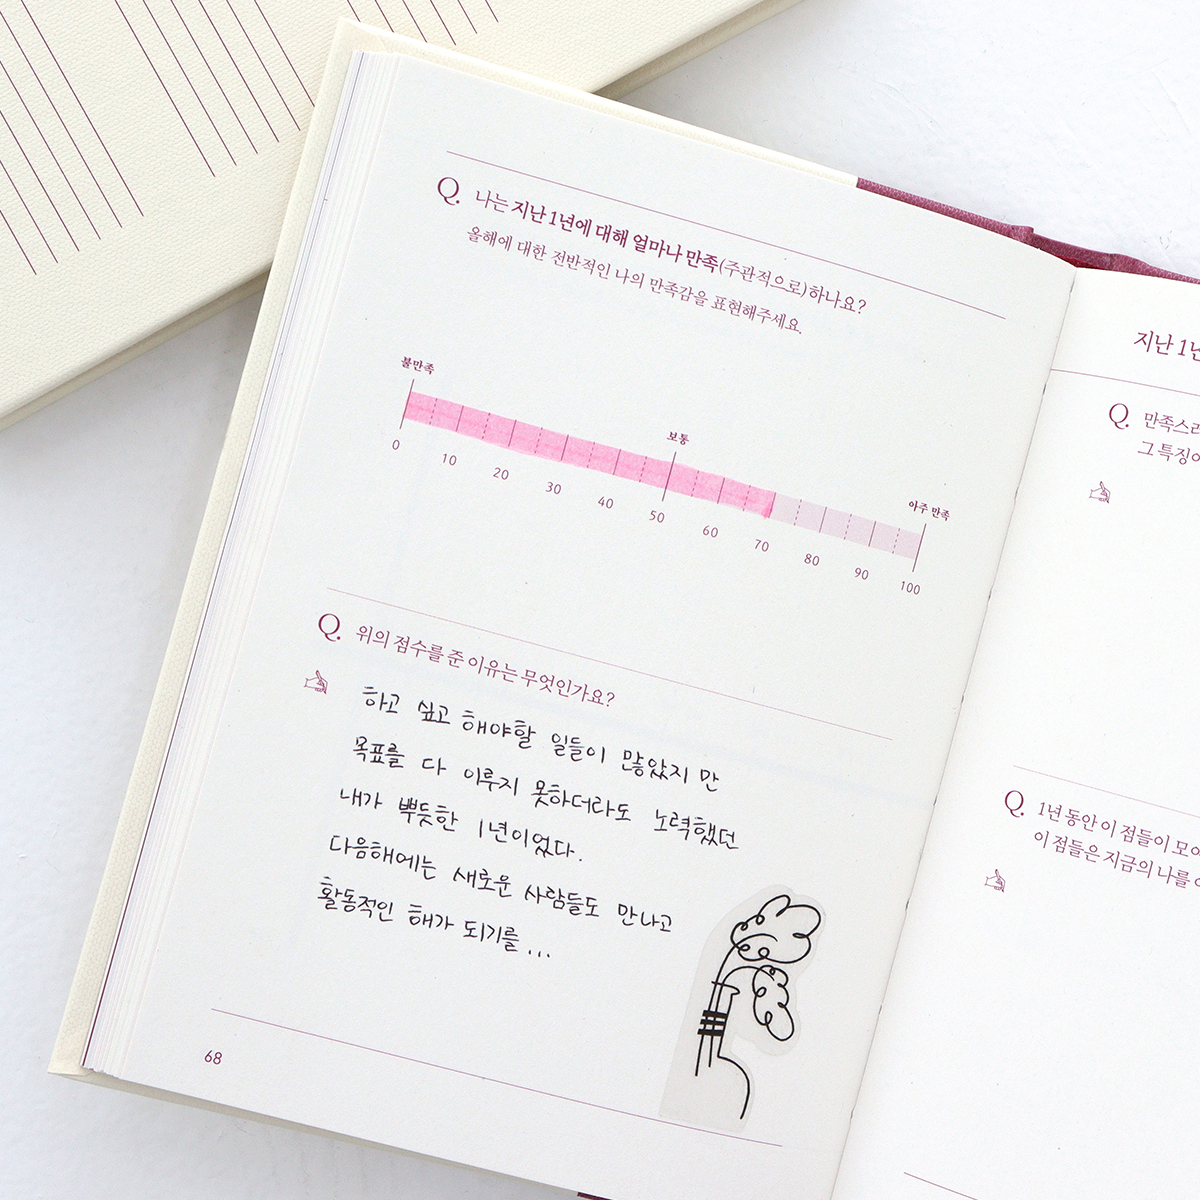 Q. 나는 지난 1년에 대해 얼마나 만족(주관적으로)하나요?
올해에 대한 전반적인 나의 만족감을 표현해주세요.
불만족
보통
아주 만족
0 10 20 30 40 50 60 70 80 90 100
Q. 위의 점수를 준 이유는 무엇인가요?
하고 싶고 해야할 일들이 많았지만
목표를 다 이루지 못하더라도 노력했던
내가 뿌듯한 1년이었다.
다음해에는 새로운 사람들도 만나고
활동적인 해가 되기를...
68
지난 1년
Q. 만족스러
그 특징이
Q. 1년 동안 이 점들이 모여
이 점들은 지금의 나를